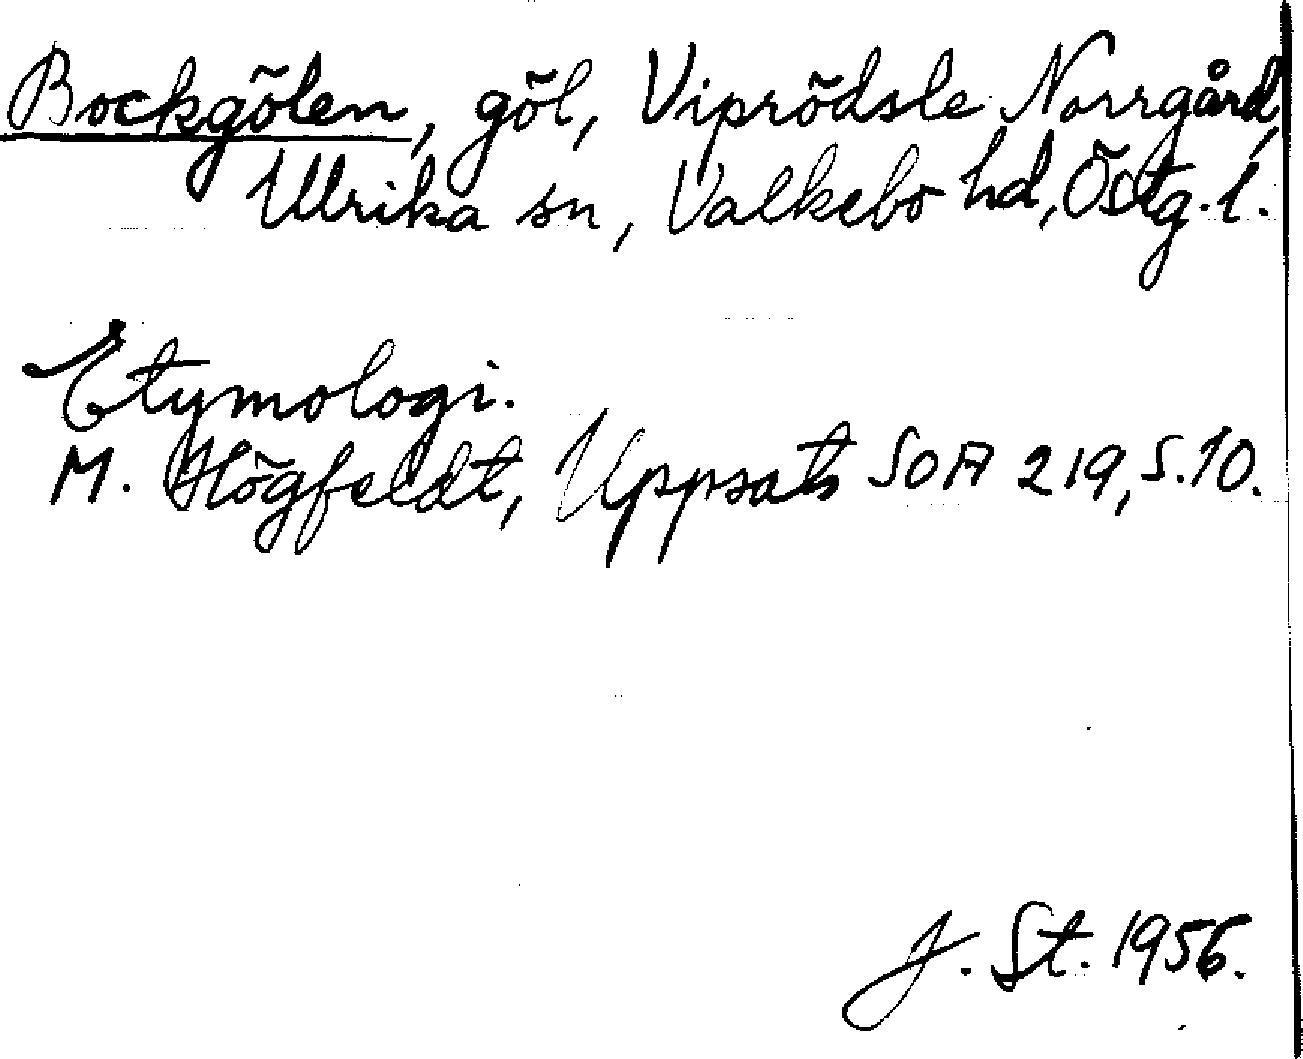 Bockgölen, göl, Viprödsle Norrgård,
Ulrika sn, Valkebo hd, Östg. l.
Etymologi.
M. Högfeldt, Uppsats SOA 219, s. 10.
J. St. 1956.